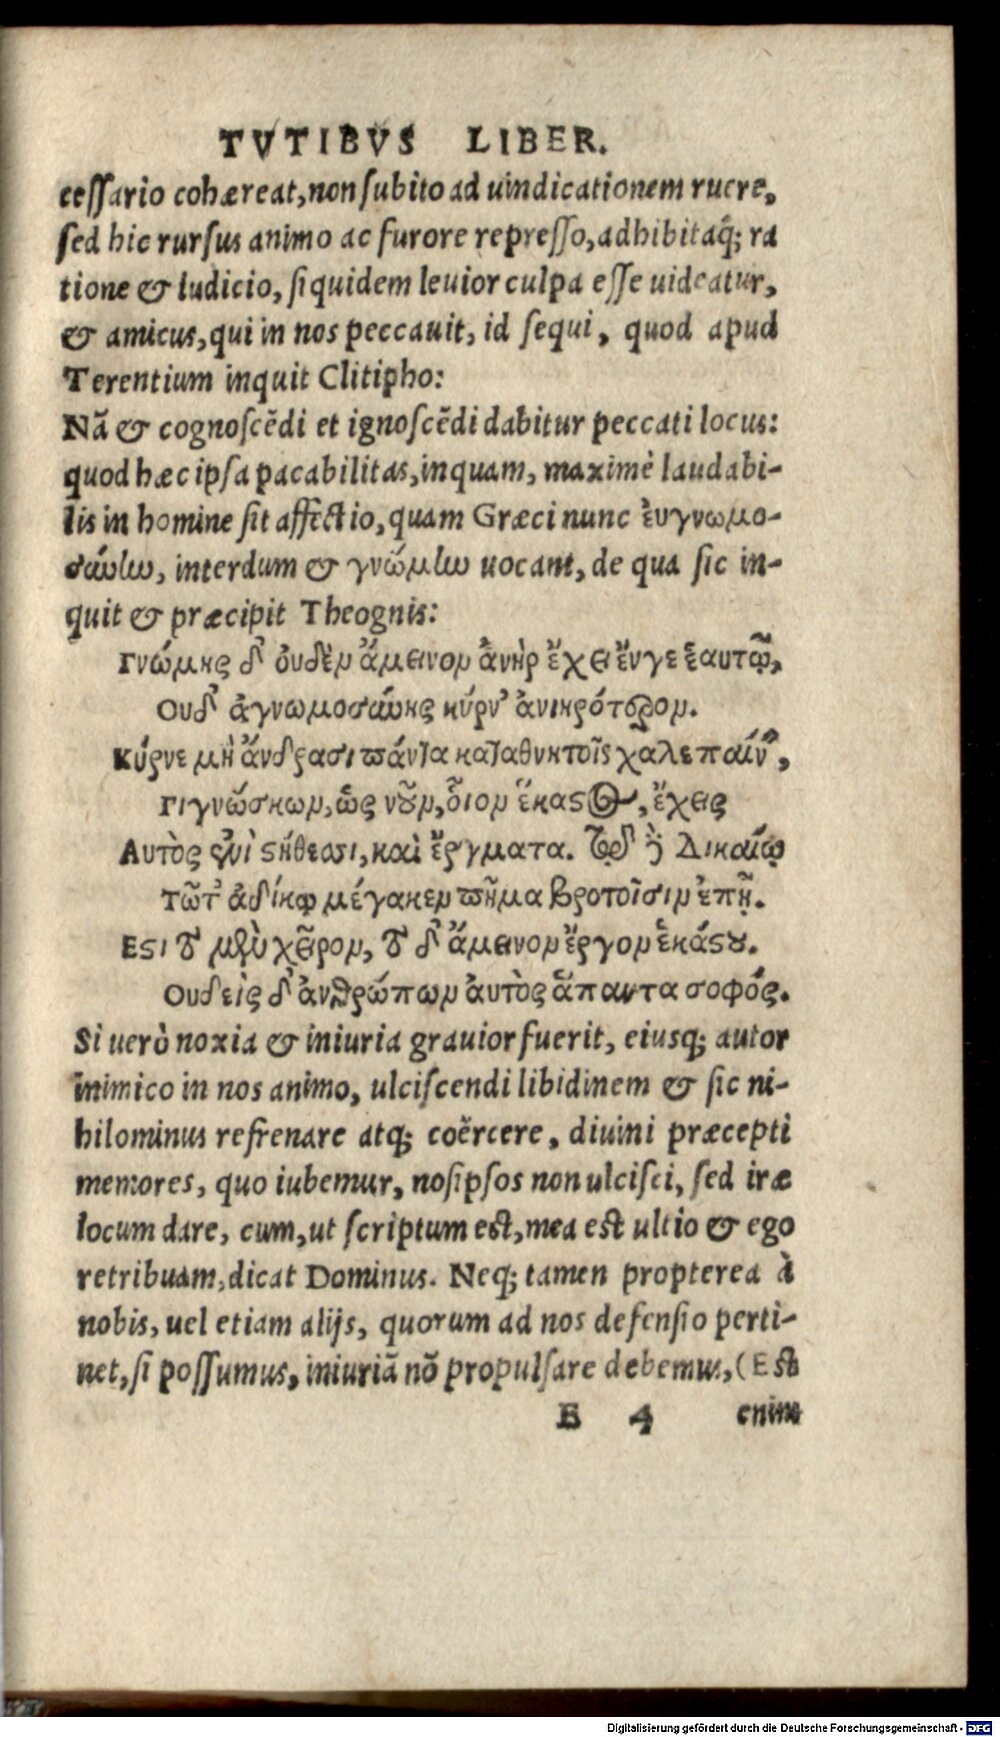 TVTIBVS LIBER.
cessario cohæreat, non subito ad uindicationem ruere,
sed hic rursus animo ac furore represso, adhibitaq́; ra
tione & Iudicio, siquidem leuior culpa esse uideatur,
& amicus, qui in nos peccauit, id sequi, quod apud
Terentium inquit Clitipho:
Nã & cognoscẽdi et ignoscẽdi dabitur peccati locus:
quod hæc ipsa pacabilitas, inquam, maximè laudabi-
lis in homine sit affectio, quam Græci nunc ἐυγνωμο-
σύνην, interdum & γνώμην uocant, de qua sic in-
quit & præcipit Theognis:
Γνώμης δ' ὀυδὲν ἄμεινον ἀνὴρ ἔχει ἔνγε ἑαυτῷ,
Ουδ' ἀγνωμοσύνης κύρν' ἀνιηρότερον.
Κύρνε μὴ ἄνδρασι πάντα καταθνητοῖς χαλεπαίνειν,
Γιγνώσκων, ὡς νοῦν, ὅιον ἕκαστος, ἔχεις
Αυτὸς ἐνὶ στήθεσι, καὶ ἔργματα. τῷδ δὲ Δικαίῳ
Τῶτ' ἀδίκῳ μέγακεν πῆμα βροτοῖσιν ἐπῇ.
Εστι τὸ μὲν χεῖρον, τὸ δ' ἄμεινον ἔργον ἑκάστου.
Ουδεὶς δ' ἀνθρώπων ἀυτὸς ἅπαντα σοφός.
Si uerò noxia & iniuria grauior fuerit, eiusq; autor
inimico in nos animo, ulciscendi libidinem & sic ni-
hilominus refrenare atq; coërcere, diuini præcepti
memores, quo iubemur, nosipsos non ulcisci, sed iræ
locum dare, cum, ut scriptum est, mea est ultio & ego
retribuam, dicat Dominus. Neq; tamen propterea à
nobis, uel etiam alijs, quorum ad nos defensio perti-
net, si possumus, iniuriã nõ propulsare debemus, (Est
E 4 enim
Digitalisierung gefördert durch die Deutsche Forschungsgemeinschaft - DFG